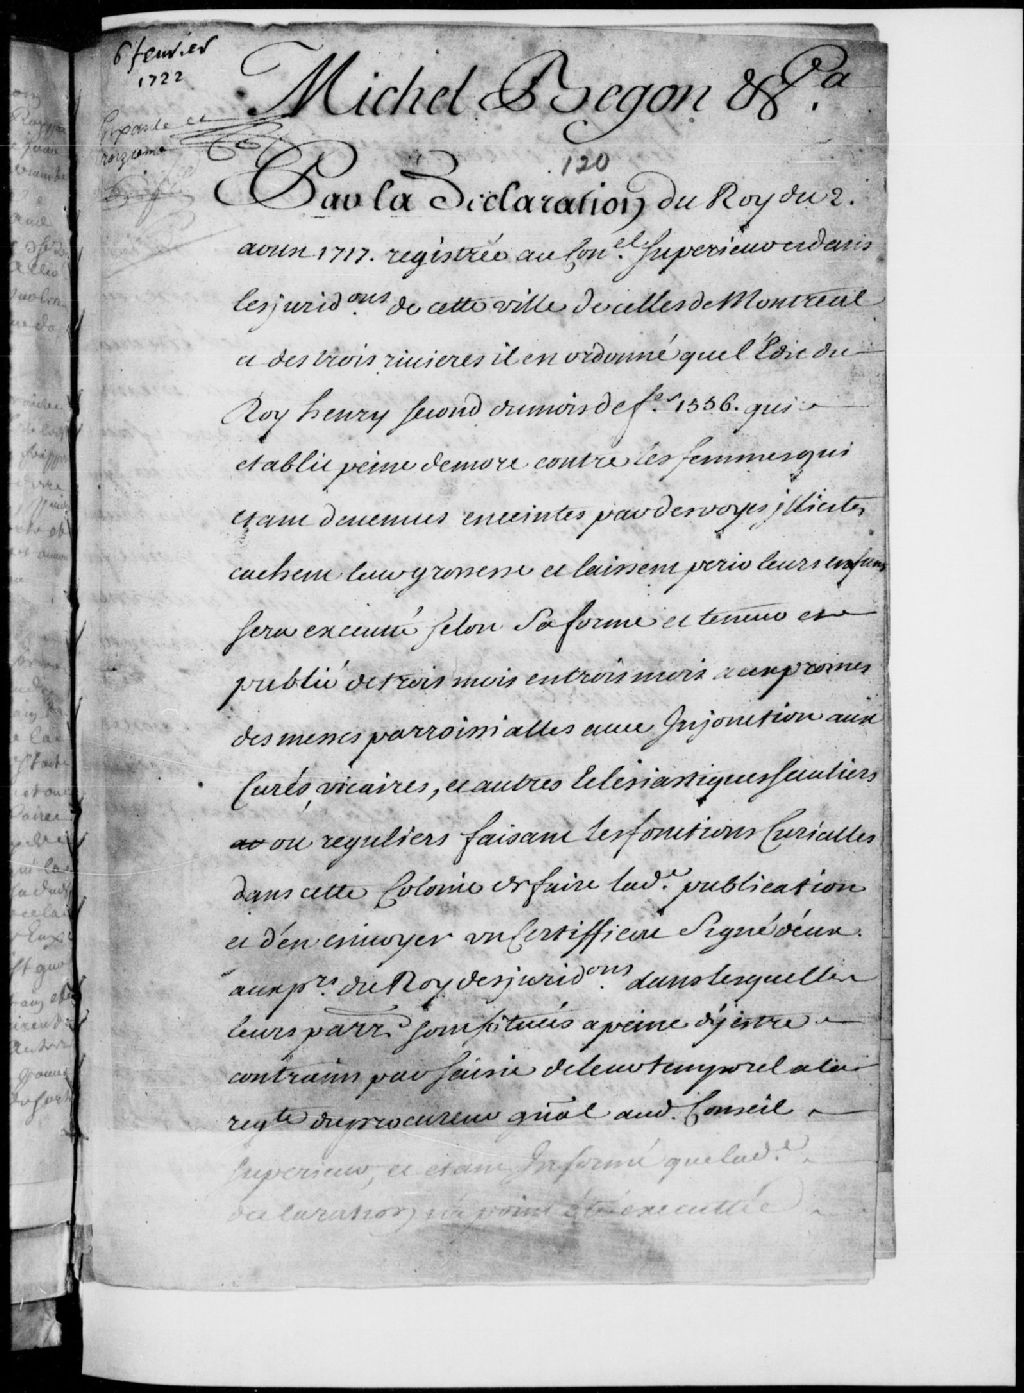 6 fevrier
1722
Michel Begon &ca
120
Par la Declaration du Roy du 2.
aoust 1717. registrée au Con.el Superieur et dans
les jurid.ons de cette ville de celles de Montreal
et des trois rivieres il est ordonné que l'Edit du
Roy henry second du mois de f.er 1556. qui
etablit peine de mort contre les femmes qui
etant devenues enceintes par des voyes jllicites
cachent leur grossesse et laissent perir leurs enfans
sera executé selon Sa forme et teneur et
publié de trois mois en trois mois aux prosnes
des messes parroissialles avec Injonction aux
Curés, vicaires, et autres Eclesiastiques seculiers
ou reguliers faisant les fonctions Curialles
dans cette Colonie de faire lad.e publication
et d'en envoyer un Certifficat Signé d'eux
aux p.rs du Roy des jurid.ons dans lesquelles
leurs parr.s sont situées a peine d'y estre
contraints par saisie de leur temporel a la
reqte du procureur gñal aud. Conseil
Superieur, et etant Informé que lad.e
declaration n'a point été executtée